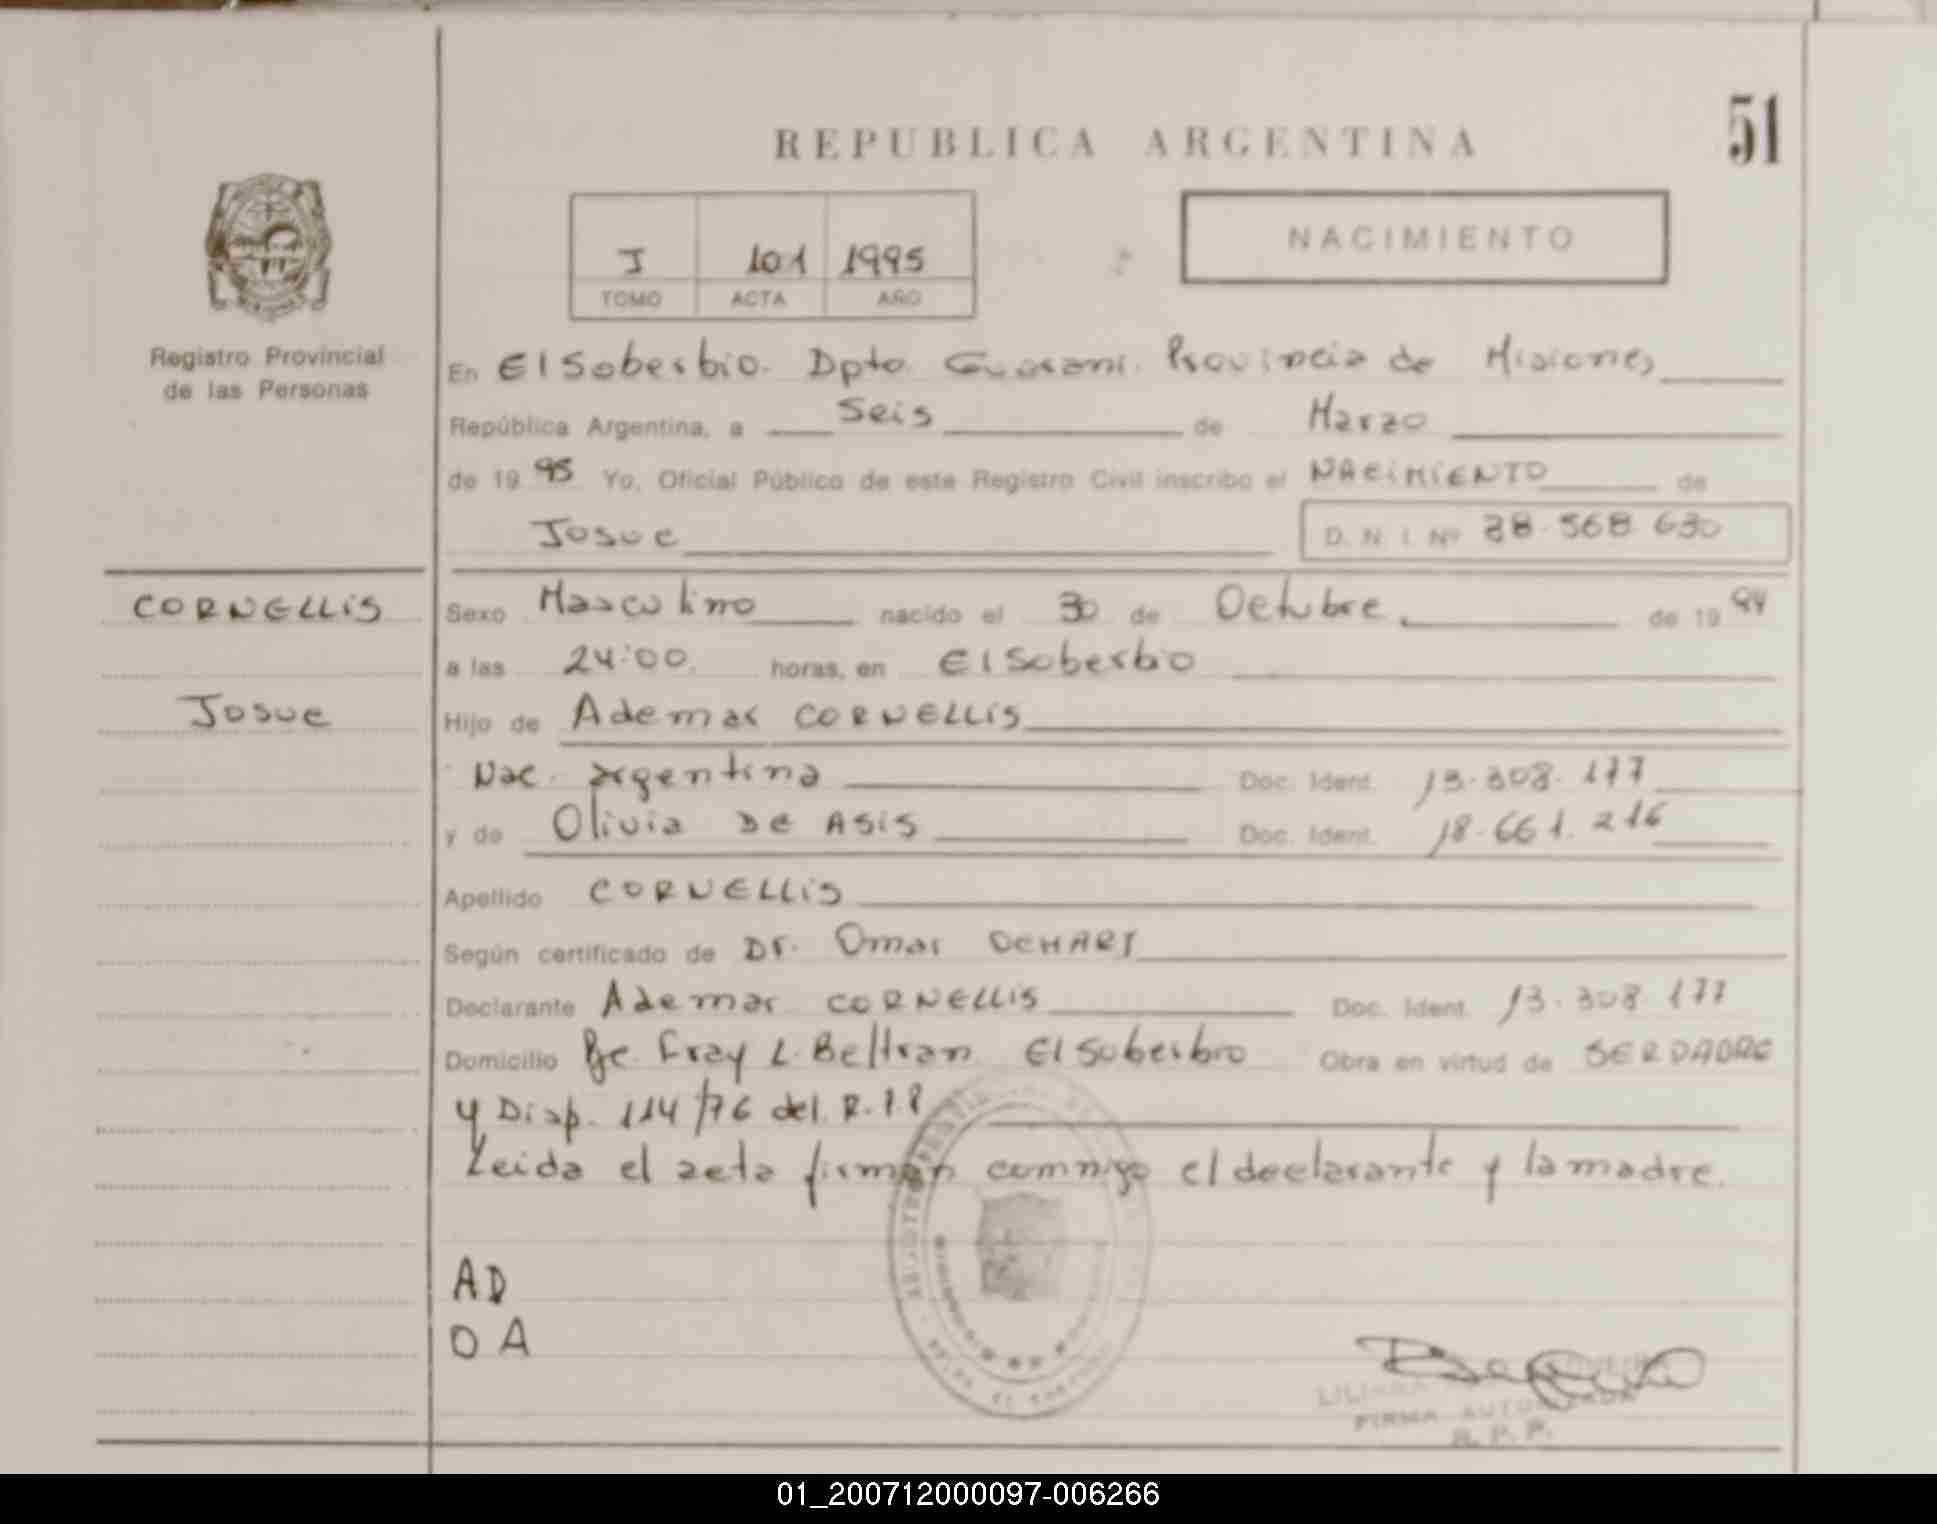 51
REPUBLICA ARGENTINA
I 101 1995
TOMO ACTA AÑO
NACIMIENTO
Registro Provincial
de las Personas
En El Soberbio. Dpto Guarani. Provincia de Misiones
República Argentina, a Seis de Marzo
de 1995 Yo, Oficial Público de este Registro Civil inscribo el NACIMIENTO de
Josue D. N. I. Nº 38.568.630
CORNELLIS
Josue
Sexo Masculino nacido el 30 de Octubre de 1994
a las 24:00 horas, en El Soberbio
Hijo de Ademar CORNELLIS
Nac. argentina Doc. Ident. 13.308.177
y de Olivia DE ASIS Doc. Ident. 18.661.216
Apellido CORNELLIS
Según certificado de Dr. Omar
Declarante Ademar CORNELLIS Doc. Ident. 13.308.177
Domicilio Pje. Fray L. Beltran El Soberbio Obra en virtud de
y Disp. 114/76 del R.P.P
Leida el acta firman conmigo el declarante y la madre.
AD
O A
FIRMA AUTORIZADA
R. P. P.
01_200712000097-006266